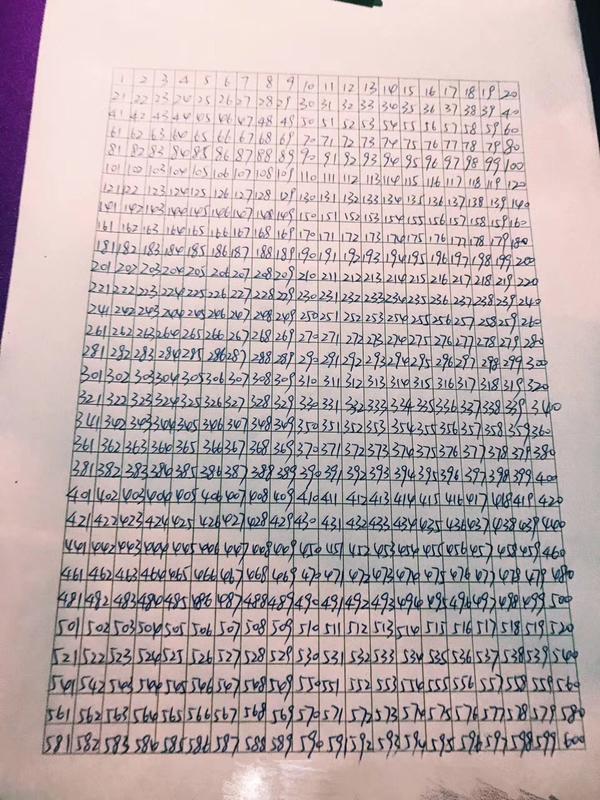 1 2 3 4 5 6 7 8 9 10 11 12 13 14 15 16 17 18 19 20
21 22 23 24 25 26 27 28 29 30 31 32 33 34 35 36 37 38 39 40
41 42 43 44 45 46 47 48 49 50 51 52 53 54 55 56 57 58 59 60
61 62 63 64 65 66 67 68 69 70 71 72 73 74 75 76 77 78 79 80
81 82 83 84 85 86 87 88 89 90 91 92 93 94 95 96 97 98 99 100
101 102 103 104 105 106 107 108 109 110 111 112 113 114 115 116 117 118 119 120
121 122 123 124 125 126 127 128 129 130 131 132 133 134 135 136 137 138 139 140
141 142 143 144 145 146 147 148 149 150 151 152 153 154 155 156 157 158 159 160
161 162 163 164 165 166 167 168 169 170 171 172 173 174 175 176 177 178 179 180
181 182 183 184 185 186 187 188 189 190 191 192 193 194 195 196 197 198 199 200
201 202 203 204 205 206 207 208 209 210 211 212 213 214 215 216 217 218 219 220
221 222 223 224 225 226 227 228 229 230 231 232 233 234 235 236 237 238 239 240
241 242 243 244 245 246 247 248 249 250 251 252 253 254 255 256 257 258 259 260
261 262 263 264 265 266 267 268 269 270 271 272 273 274 275 276 277 278 279 280
281 282 283 284 285 286 287 288 289 290 291 292 293 294 295 296 297 298 299 300
301 302 303 304 305 306 307 308 309 310 311 312 313 314 315 316 317 318 319 320
321 322 323 324 325 326 327 328 329 330 331 332 333 334 335 336 337 338 339 340
341 342 343 344 345 346 347 348 349 350 351 352 353 354 355 356 357 358 359 360
361 362 363 364 365 366 367 368 369 370 371 372 373 374 375 376 377 378 379 380
381 382 383 384 385 386 387 388 389 390 391 392 393 394 395 396 397 398 399 400
401 402 403 404 405 406 407 408 409 410 411 412 413 414 415 416 417 418 419 420
421 422 423 424 425 426 427 428 429 430 431 432 433 434 435 436 437 438 439 440
441 442 443 444 445 446 447 448 449 450 451 452 453 454 455 456 457 458 459 460
461 462 463 464 465 466 467 468 469 470 471 472 473 474 475 476 477 478 479 480
481 482 483 484 485 486 487 488 489 490 491 492 493 494 495 496 497 498 499 500
501 502 503 504 505 506 507 508 509 510 511 512 513 514 515 516 517 518 519 520
521 522 523 524 525 526 527 528 529 530 531 532 533 534 535 536 537 538 539 540
541 542 543 544 545 546 547 548 549 550 551 552 553 554 555 556 557 558 559 560
561 562 563 564 565 566 567 568 569 570 571 572 573 574 575 576 577 578 579 580
581 582 583 584 585 586 587 588 589 590 591 592 593 594 595 596 597 598 599 600